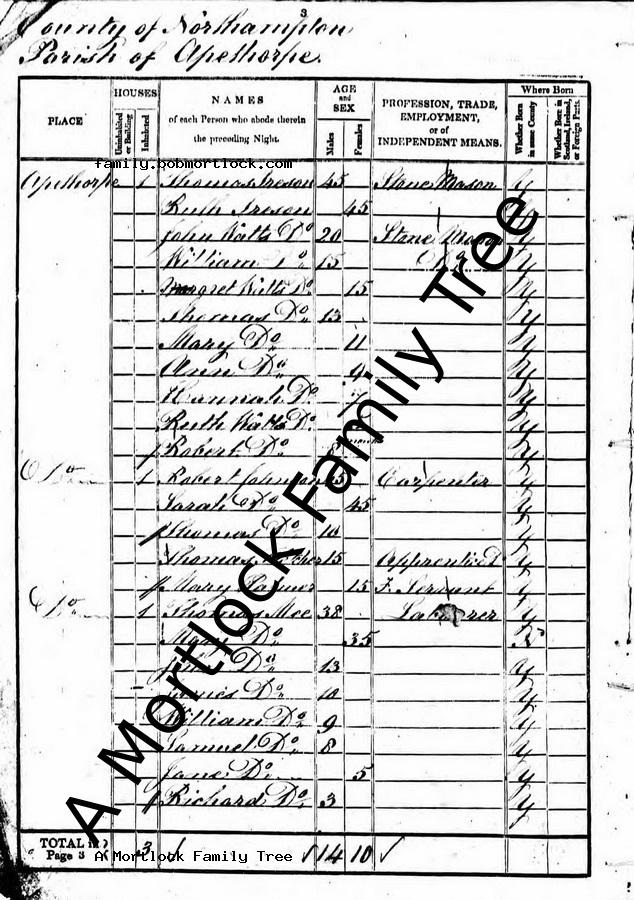 3
County of Northampton
Parish of Apethorpe.
PLACE
HOUSES
Uninhabited or Building
Inhabited
NAMES
of each Person who abode therein
the preceding Night.
AGE
and
SEX
Males
Females
PROFESSION, TRADE,
EMPLOYMENT,
or of
INDEPENDENT MEANS.
Where Born
Whether Born in same County
Whether Born in Scotland, Ireland, or Foreign Parts.
family.bobmortlock.com
Apethorpe 1 Thomas Ireson 45 Stone Mason y
Ruth Ireson 45 y
John Watts Do 20 Stone Mason y
William Do 15 Do y
Margret Watts Do 15 y
Thomas Do 13 y
Mary Do 11 y
Ann Do 9 y
Hannah Do 7 y
Ruth Watts Do y
Robert Do y
Do 1 Robert Johnson 45 Carpenter y
Sarah Do 45 y
Thomas Do 10 y
Thomas 15 Apprentice y
Mary Palmer 15 F. Servant y
Do 1 Thomas Mee 38 Labourer y
Mary Do 35 N
John Do 13 y
James Do 10 y
William Do 9 y
Samuel Do 8 y
Jane Do 5 y
Richard Do 3 y
TOTAL in
Page 3 3 14 10
A Mortlock Family Tree
A Mortlock Family Tree